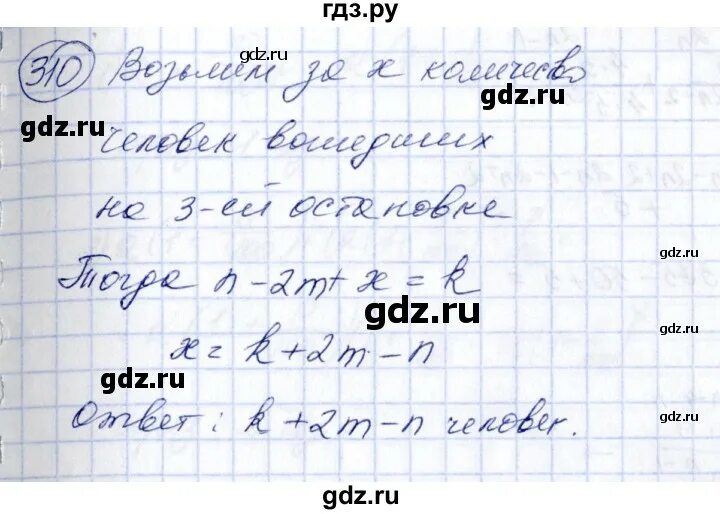 гдз.ру
310 Возьмем за x количесво
gdz.ru
gdz.ru
gdz.ru
человек вошедших
на 3-ей остановке
gdz.ru
Тогда n - 2m + x = k
gdz.ru
gdz.ru
x = k + 2m - n
gdz.ru
gdz.ru
Ответ: k + 2m - n человек.
gdz.ru